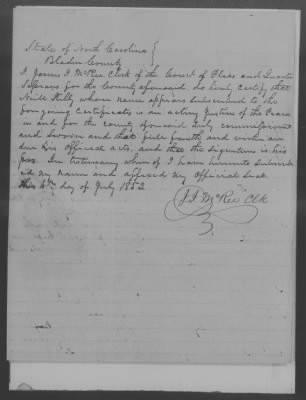 State of North Carolina }
Bladen County
I James I. McRee Clerk of the Court of Pleas and Quarter
Sessions for the County aforesaid, do hereby certify that
Neill Kelly whose name appears subscribed to the
foregoing Certificate is an acting Justice of the Peace
in and for the county aforesaid duly commissioned
and sworn and that full faith and credit are
due his official acts, and that the signature is his
own. In testimony whereof I have hereunto subscrib
ed my name and affixed my official seal
this day of July 1852
J. I. McRee Clk